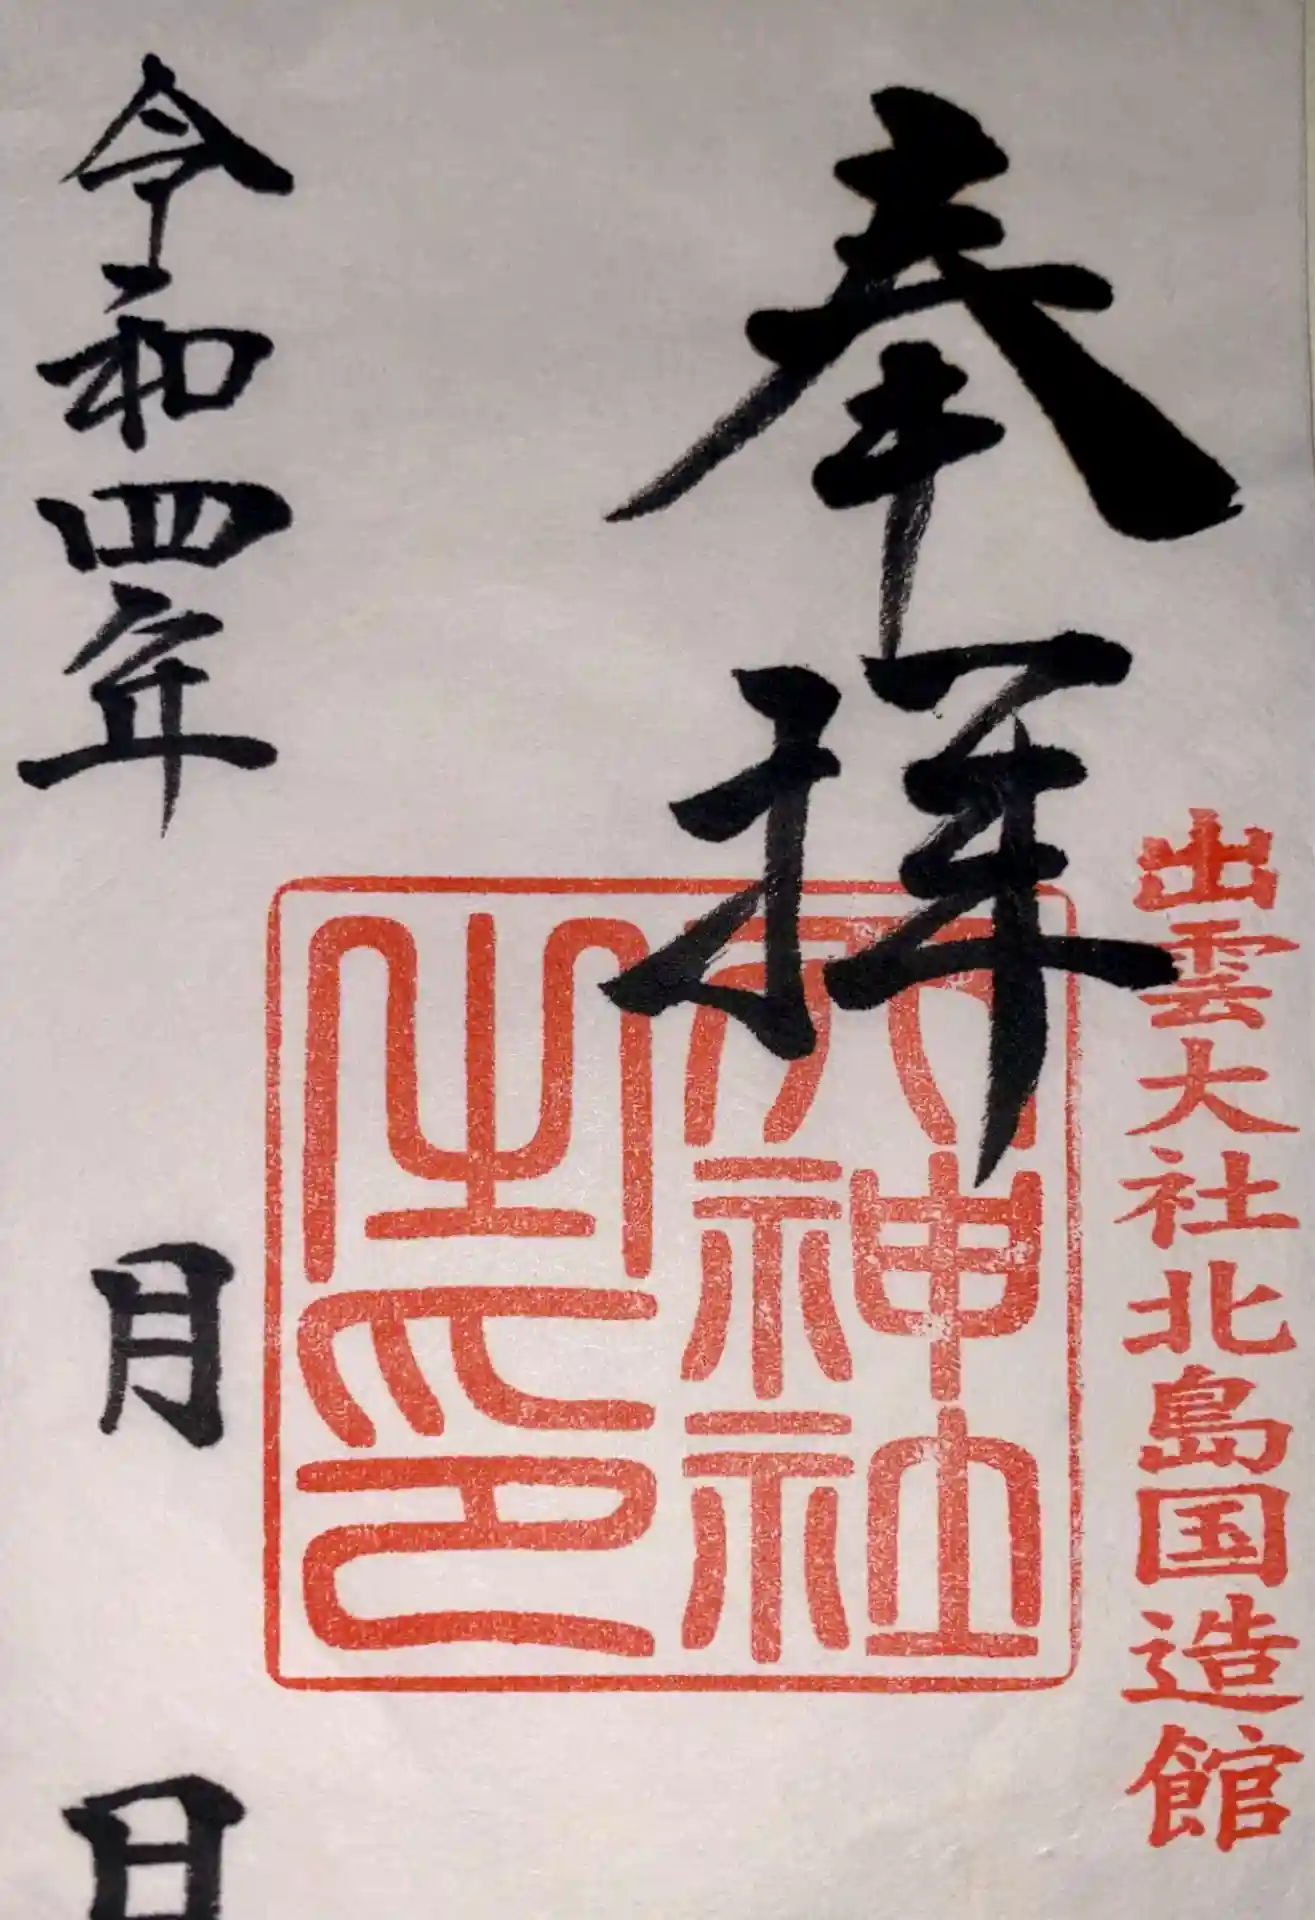 奉拝
出雲大社北島国造館
天神社
之印
令和四年
月
日